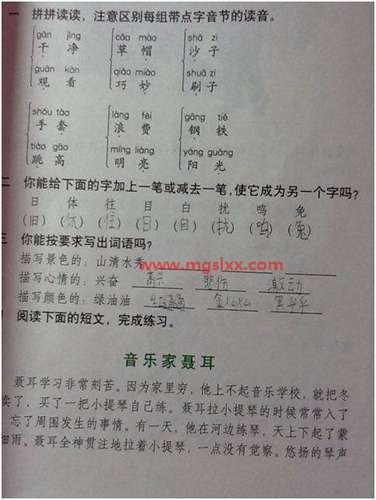 一 拼拼读读，注意区别每组带点字音节的读音。
gān jìng cǎo mào shā zi
干 净 草 帽 沙 子
guān kàn qiǎo miào shuā zi
观 看 巧 妙 刷 子
shǒu tào làng fèi gāng tiě
手 套 浪 费 钢 铁
tiào gāo míng liàng yáng guāng
跳 高 明 亮 阳 光
二 你能给下面的字加上一笔或减去一笔,使它成为另一个字吗?
日 体 往 目 白 扰 鸣 免
(旧) (休) (住) (日) (自) (拢) (鸣) (兔)
三 你能按要求写出词语吗?
描写景色的：山清水秀
www.mgslxx.com
描写心情的：兴奋 高兴 悲伤 激动
描写颜色的：绿油油 金灿灿 黑乎乎
阅读下面的短文，完成练习。
音乐家聂耳
聂耳学习非常刻苦。因为家里穷，他上不起音乐学校，就把冬
卖了，买了一把小提琴自己练。聂耳拉小提琴的时候常常入了
忘了周围发生的事情。有一天，他在河边练琴，天上下起了蒙
细雨。聂耳全神贯注地拉着小提琴，一点没有觉察。悠扬的琴声